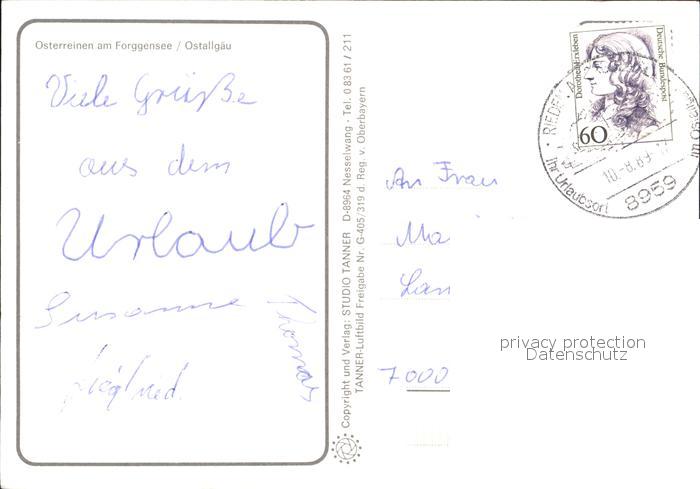 Osterreinen am Forggensee / Ostallgäu
Viele Grüße
aus dem
Urlaub
Susanne
Thomas
Siegfried.
Copyright und Verlag: STUDIO TANNER D-8964 Nesselwang - Tel. 0 83 61 / 211
TANNER-Luftbild Freigabe Nr. G-405/319 d. Reg. v. Oberbayern
Dorothea Erxleben
Deutsche Bundespost
60
RIEDEN
10.-8.89
Ihr Urlaubsort
8959
An Frau
Ma
Lan
7000
privacy protection
Datenschutz